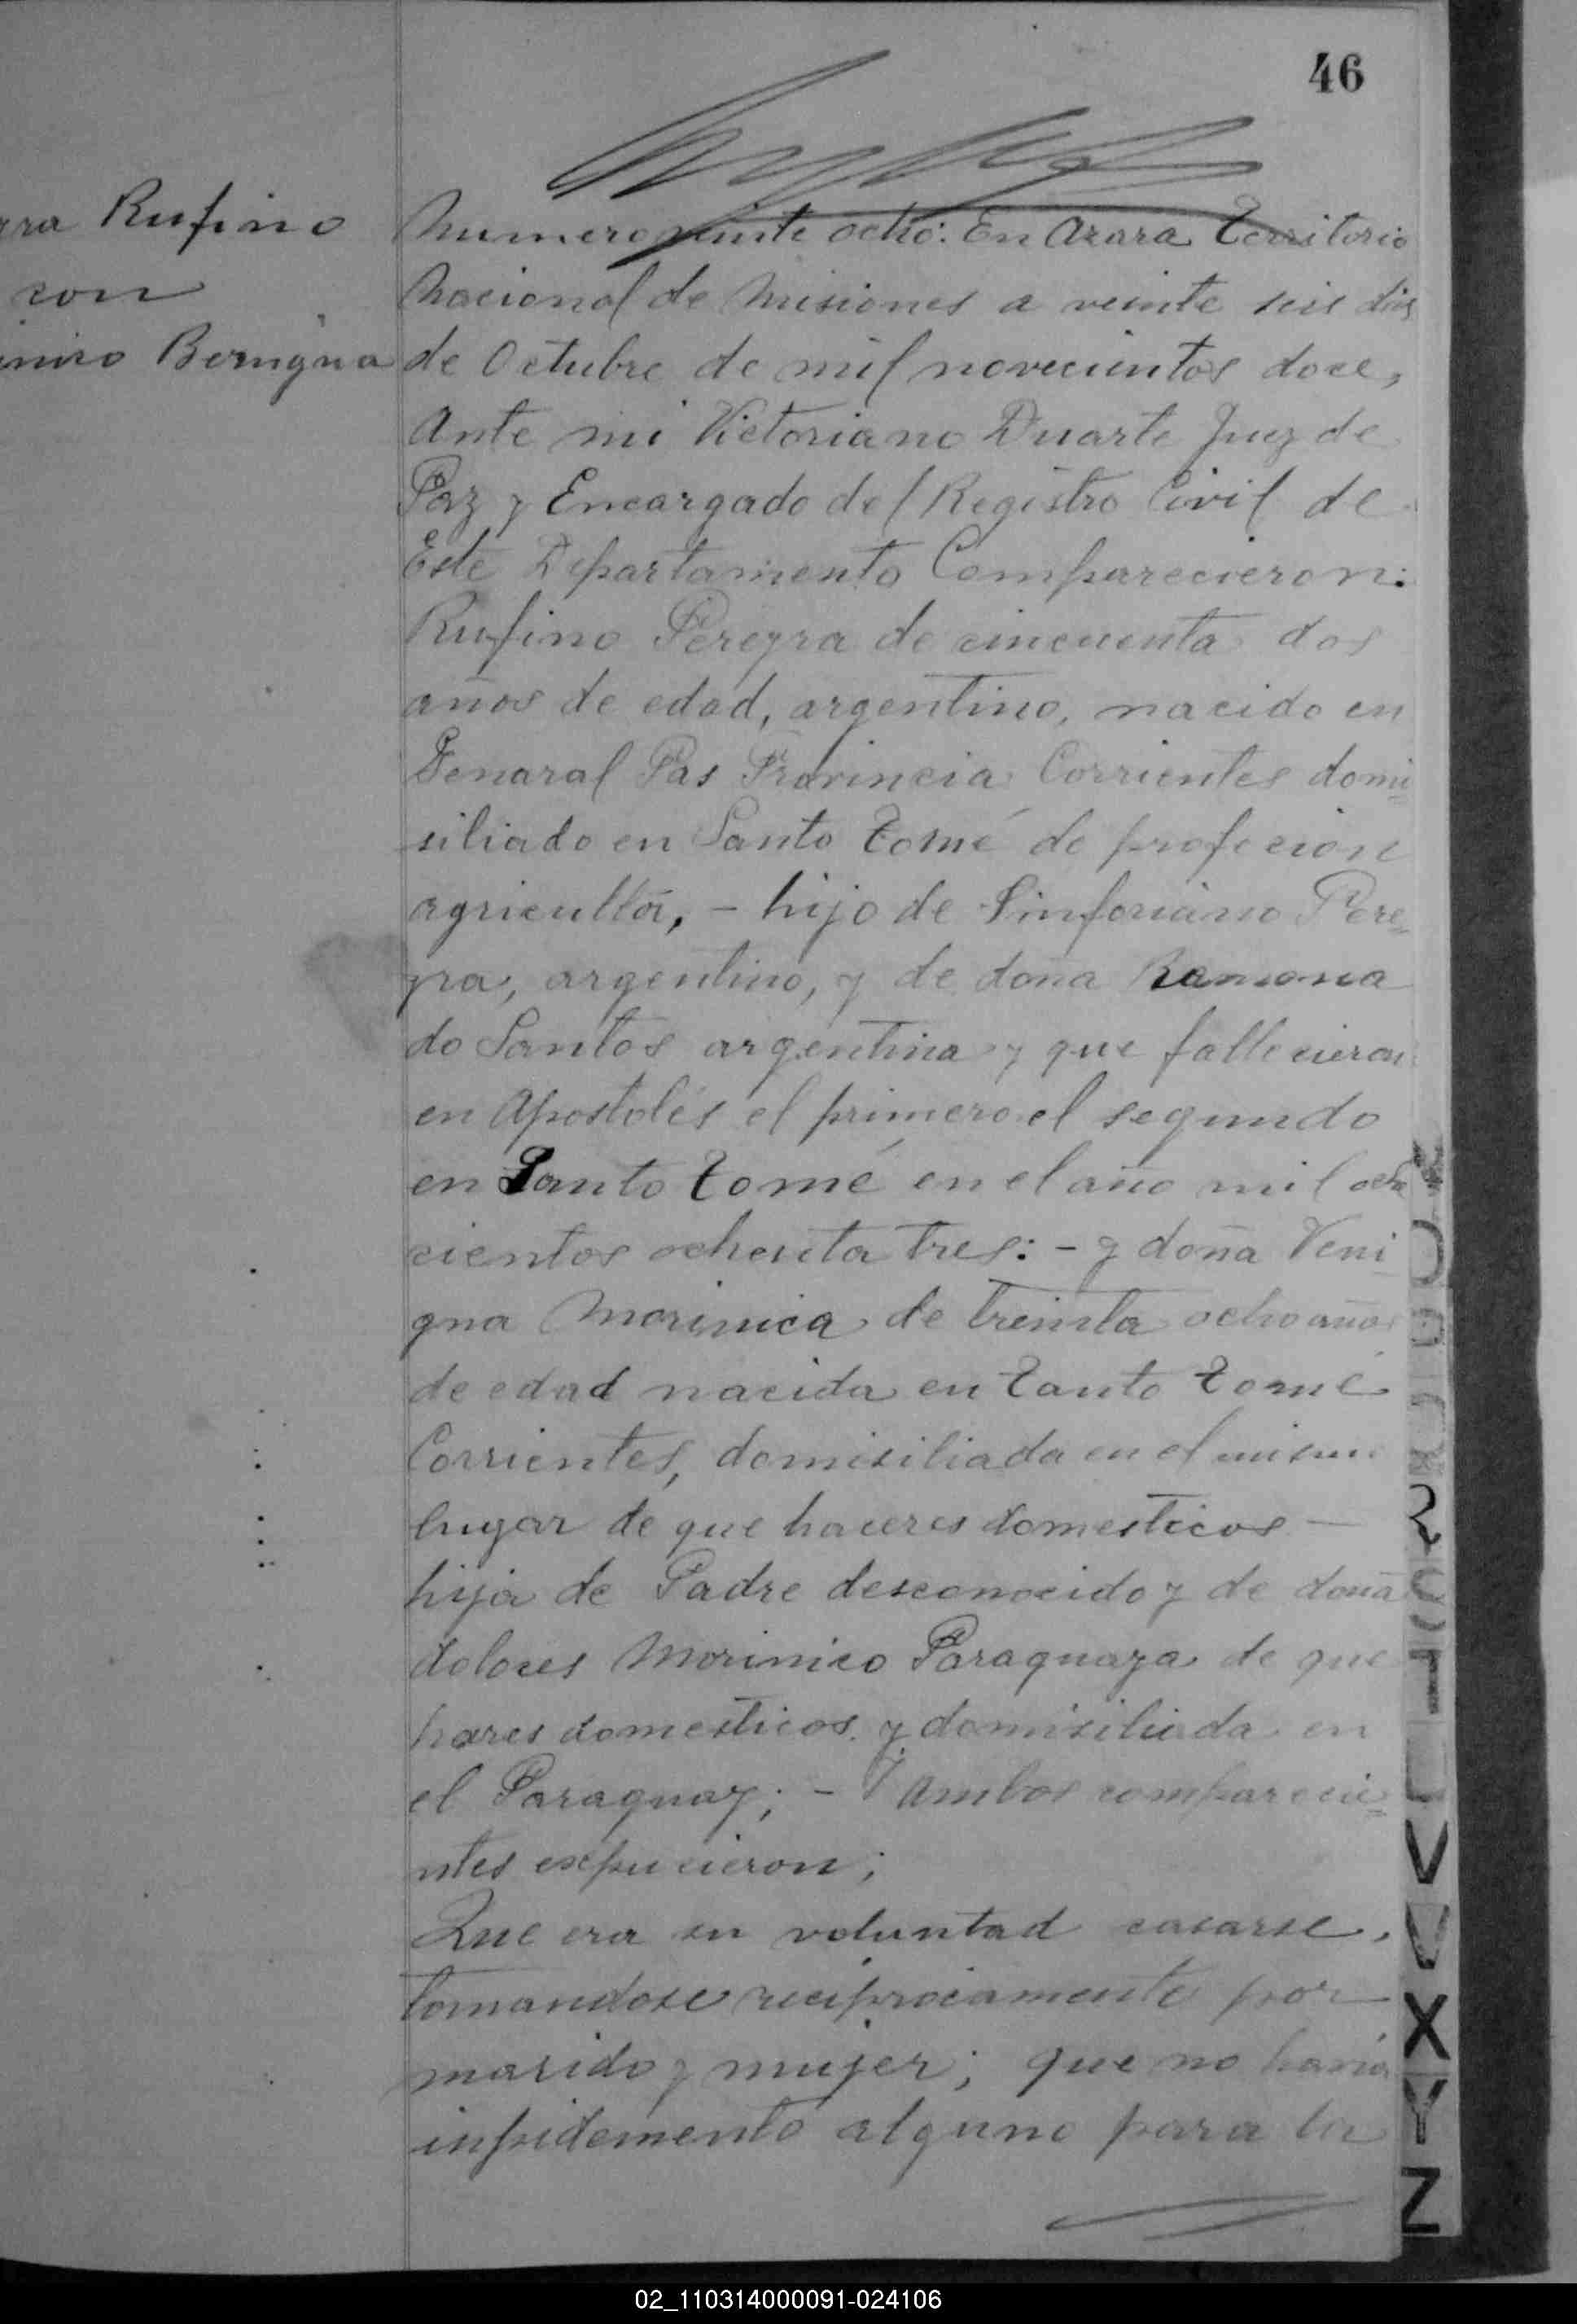 46
rra Rufino
con
inico Benigna
Numero veinte ocho: En Azara Territorio
Nacional de Misiones a veinte seis dias
de Octubre de mil novecientos doce,
Ante mi Victoriano Duarte Juez de
Paz y Encargado del Registro Civil de
Este Departamento Comparecieron:
Rufino Pereyra de cincuenta dos
años de edad, argentino, nacido en
Genaral Pas Provincia Corrientes domi=
siliado en Santo Tomé de profecion
agricultor, - hijo de Sinforiano Pere=
yra, argentino, y de doña Ramona
do Santos argentina y que fallecieron
en Apostoles el primero el segundo
en Santo Tomé en el año mil ocho
cientos ochenta tres: - y doña Veni
gna Morinica de treinta ocho años
de edad nacida en Santo Tomé
Corrientes, domisiliada en el mismo
lugar de que haceres domesticos —
hija de Padre desconocido y de doña
dolores Morinico Paraguaya de que
hares domesticos y domisiliada en
el Paraguay; - Y Ambos comparecie=
ntes expucieron;
Que era su voluntad casarse,
tomandose reciprocamente por
marido y mujer; que no havia
inpidemento alguno para la
V
X
Y
Z
02_110314000091-024106